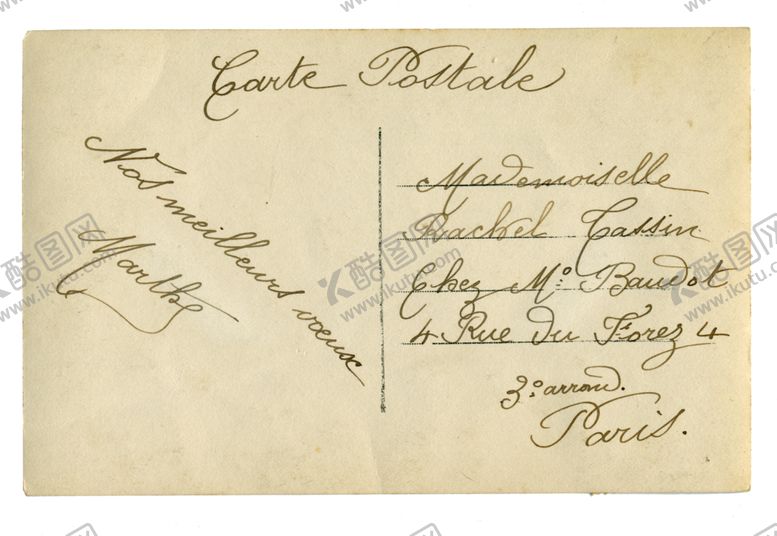 Carte Postale
Nos meilleurs vœux
Marthe
Mademoiselle
Rachel Cassin
Chez Mº Baudot
4 Rue du Forez 4
3º arrond.
Paris.
酷图网
www.ikutu.com